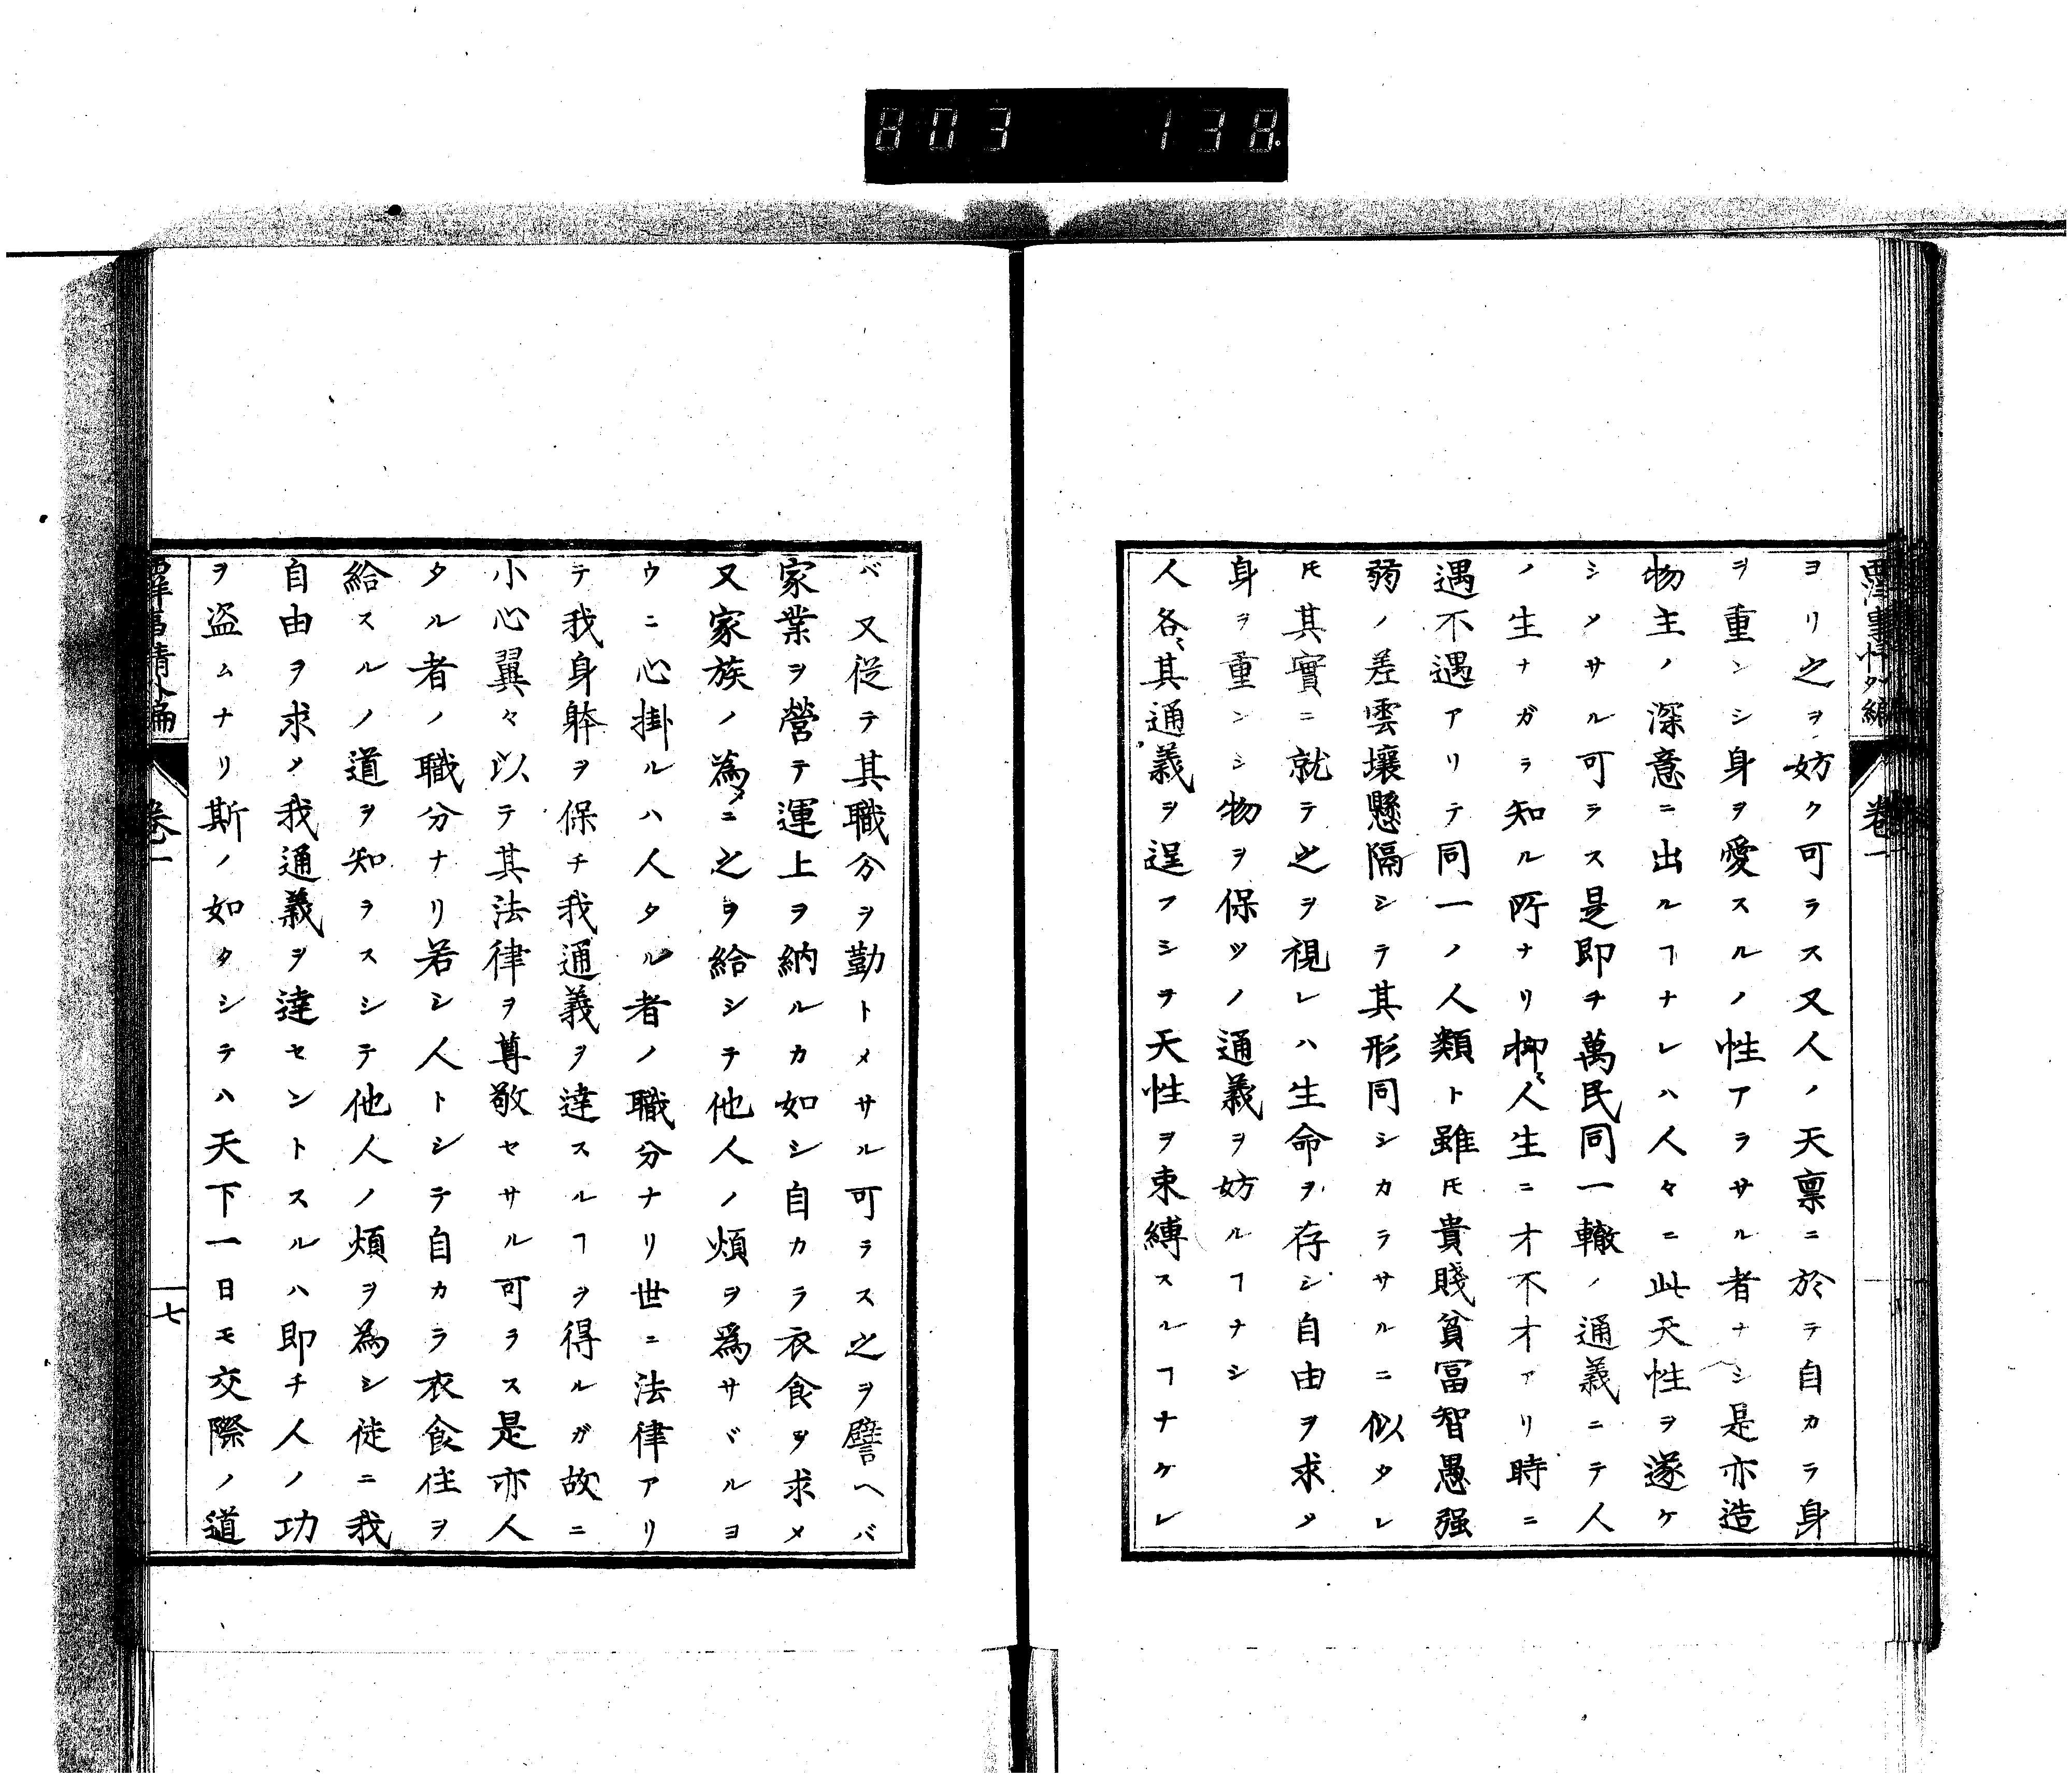 803 138
西洋事情外編 卷一
ヨリ之ヲ妨ク可ラス又人ノ天禀ニ於テ自カラ身
ヲ重ンシ身ヲ愛スルノ性アラサル者ナシ是亦造
物主ノ深意ニ出ルヿナレハ人々ニ此天性ヲ遂ケ
シメサル可ラス是即チ萬民同一轍ノ通義ニテ人
ノ生ナガラ知ル所ナリ抑〻人生ニ才不才アリ時ニ
遇不遇アリテ同一ノ人類ト雖𪜈貴賤貧冨智愚强
弱ノ差雲壤懸隔シテ其形同シカラサルニ似タレ
𪜈其實ニ就テ之ヲ視レハ生命ヲ存シ自由ヲ求メ
身ヲ重ンシ物ヲ保ツノ通義ヲ妨ルヿナシ
人各〻其通義ヲ逞フシテ天性ヲ束縛スルヿナケレ
バ又從テ其職分ヲ勤トメサル可ラス之ヲ譬ヘバ
家業ヲ營テ運上ヲ納ルカ如シ自カラ衣食ヲ求メ
又家族ノ為メニ之ヲ給シテ他人ノ煩ヲ為サヾルヨ
ウニ心掛ルハ人タル者ノ職分ナリ世ニ法律アリ
テ我身躰ヲ保チ我通義ヲ達スルヿヲ得ルガ故ニ
小心翼々以テ其法律ヲ尊敬セサル可ラス是亦人
タル者ノ職分ナリ若シ人トシテ自カラ衣食住ヲ
給スルノ道ヲ知ラスシテ他人ノ煩ヲ為シ徒ニ我
自由ヲ求メ我通義ヲ達セントスルハ即チ人ノ功
ヲ盗ムナリ斯ノ如クシテハ天下一日モ交際ノ道
西洋事情外編 卷一 十七